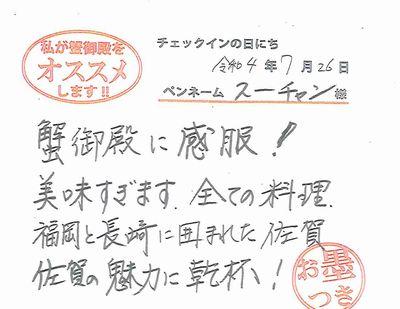 私が蟹御殿を
オススメ
します!!
チェックインの日にち
令和4年7月26日
ペンネーム スーチャン 様
蟹御殿に感服!
美味すぎます.全ての料理.
福岡と長崎に囲まれた佐賀
佐賀の魅力に乾杯、!
お墨
つき